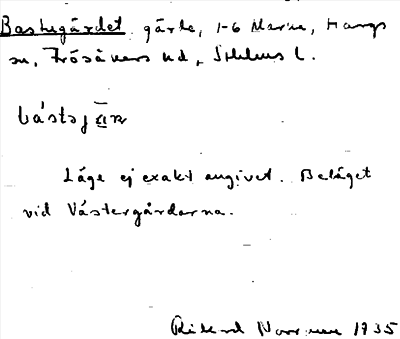 Bastugärdet gärde, 1-6 Marne, Hangs
sn, Frösåkers hd, Sthlms l.
Läge ej exakt angivet. Beläget
vid Västergårdarna.
Rikard Norrman 1935